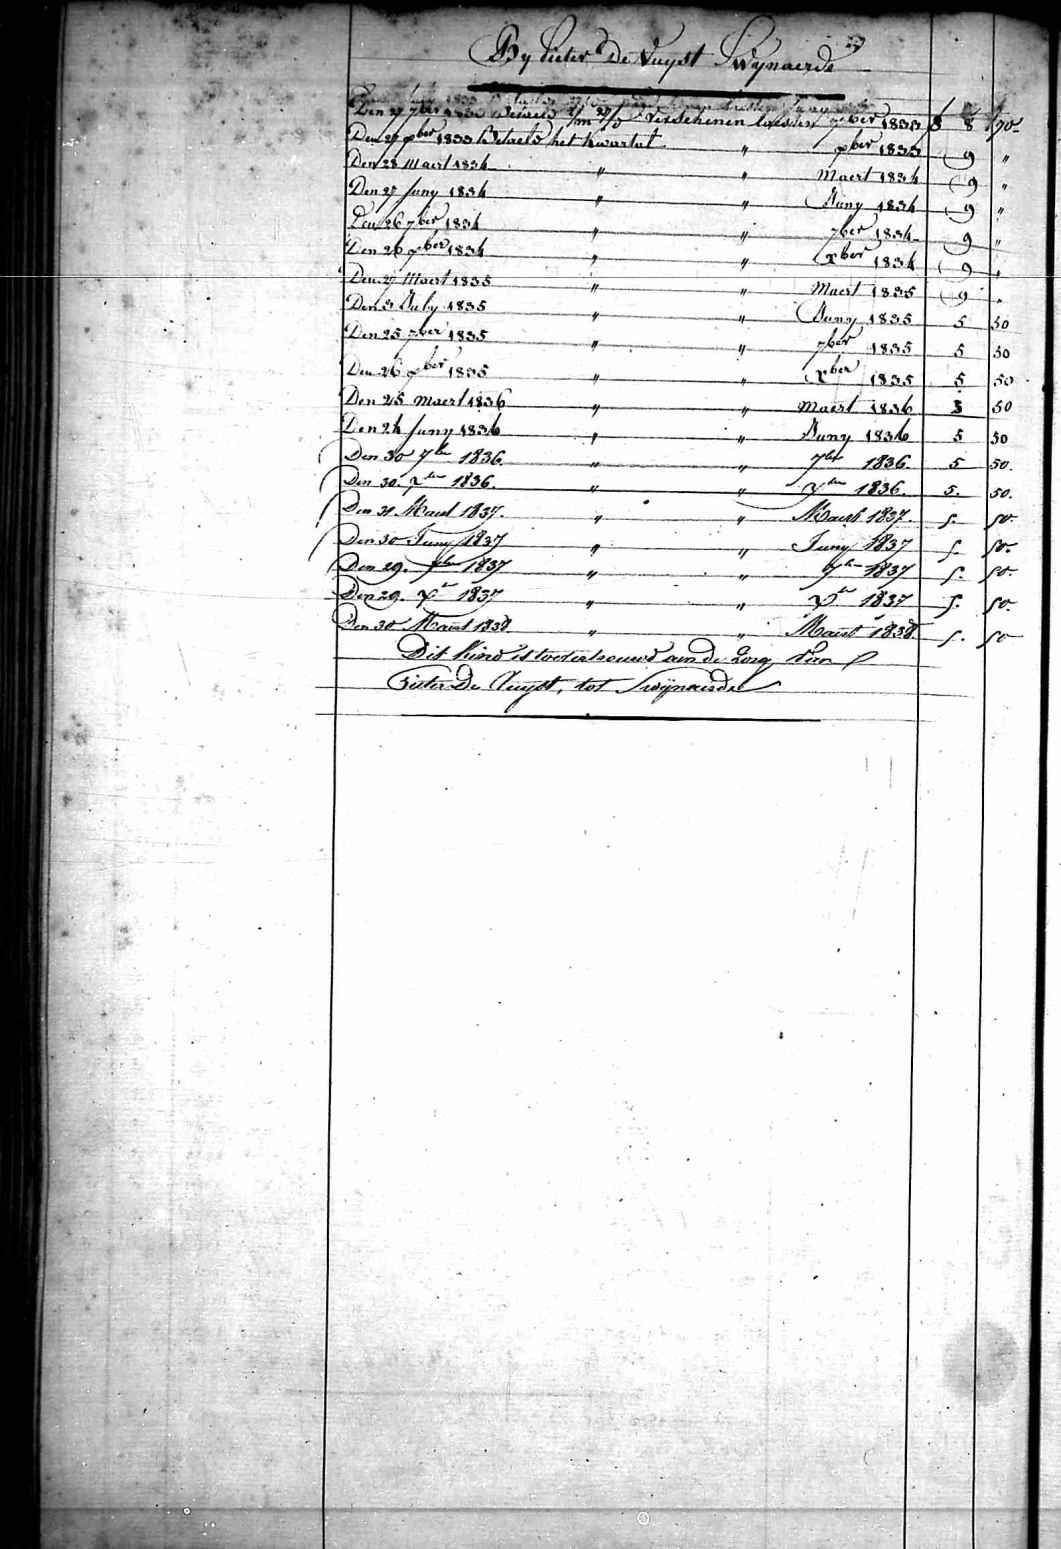 By Pieter De Vuyst Swynaerde
Den 27 7ber Betaeld verschenen laesten 7ber 1833 8 90
Den 27 xber 1833 Betaeld het kwartal " xber 1833 9 "
Den 28 Maert 1834 " " Maert 1834 9 "
Den 27 Juny 1834 " " Juny 1834 9 "
Den 26 7ber 1834 " " 7ber 1834 9 "
Den 26 xber 1834 " " xber 1834 9 "
Den 27 Maert 1835 " " Maert 1835 9 "
Den 3 July 1835 " " Juny 1835 5 50
Den 25 7ber 1835 " " 7ber 1835 5 50
Den 26 xber 1835 " " xber 1835 5 50
Den 25 maert 1836 " " maert 1836 5 50
Den 24 Juny 1836 " " Juny 1836 5 50
Den 30 7ber 1836. " " 7ber 1836. 5 50.
Den 30. xber 1836. " " xber 1836. 5. 50.
Den 31. Maert 1837. " " Maert 1837. 5. 50.
Den 30 Juny 1837 " " Juny 1837 5. 50.
Den 29. 7ber 1837 " " 7ber 1837 5. 50.
Den 29. xber 1837 " " xber 1837 5. 50.
Den 30 Maert 1838 " " Maert 1838 5. 50
Dit Kind is toevertrouwd aen de zorg van
Pieter De Vuyst, tot Swynaerde